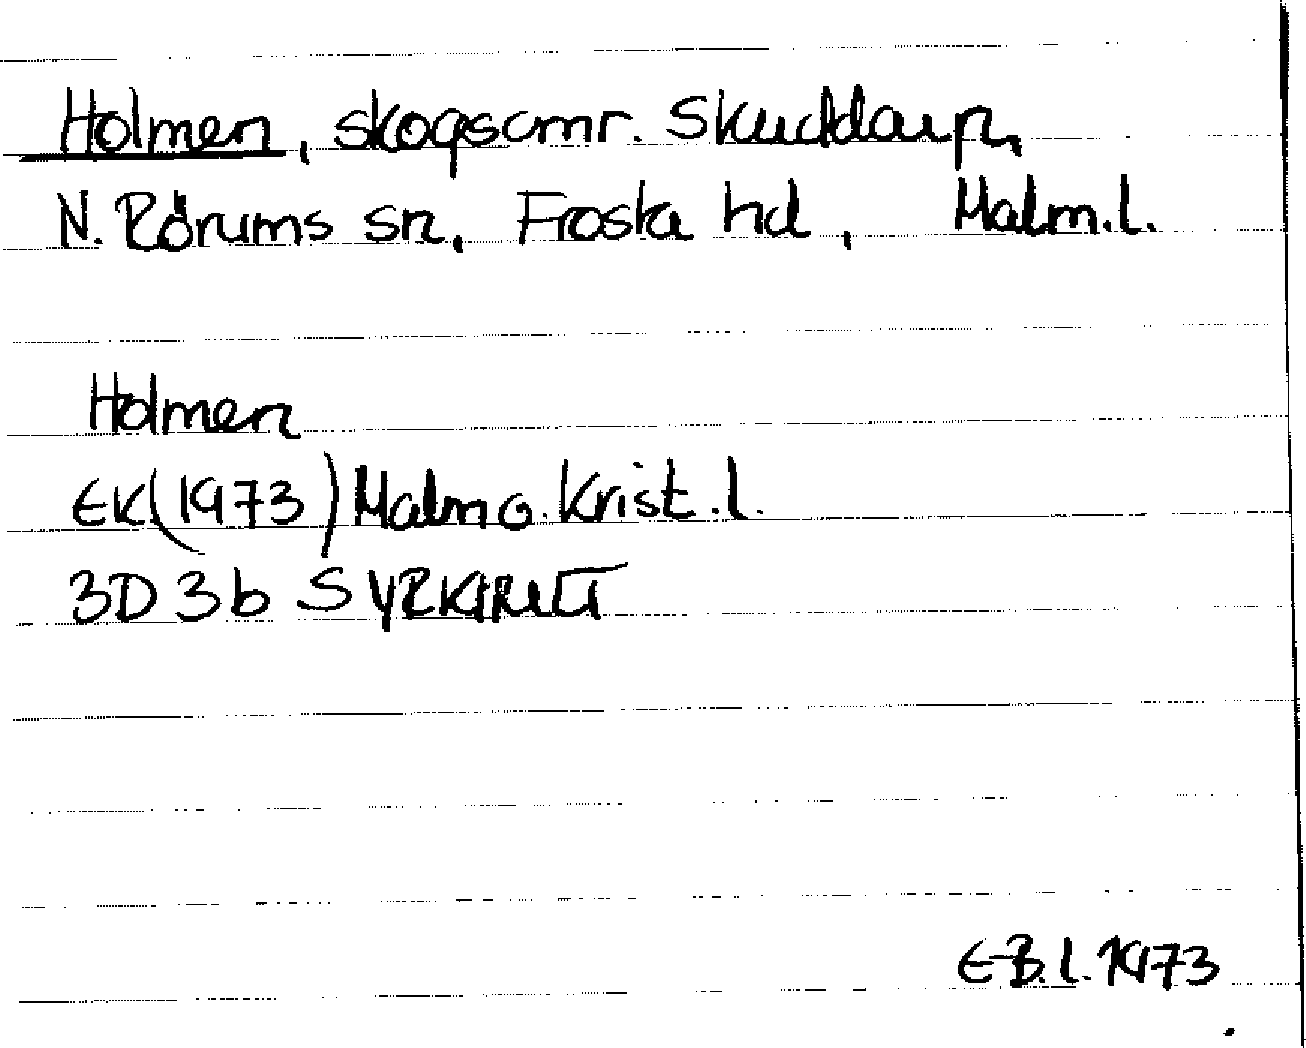 Holmen, skogsomr. Skuddarp,
N. Rörums sn, Frosta hd, Malm. l.
Holmen
EK (1973) Malmö. Krist. l.
3D 3b S
E B. L. 1973